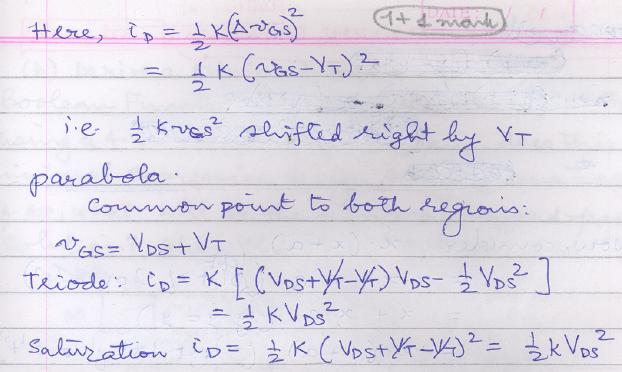 Here, i_D = 1/2 K(Δv_GS)² (1+1 mark)
= 1/2 K (v_GS-V_T)²
i.e. 1/2 K v_GS² shifted right by V_T
parabola.
Common point to both regions:
v_GS = V_DS + V_T
Triode: i_D = K [(V_DS+V_T-V_T) V_DS - 1/2 V_DS²]
= 1/2 K V_DS²
Saturation i_D = 1/2 K (V_DS+V_T-V_T)² = 1/2 k V_DS²